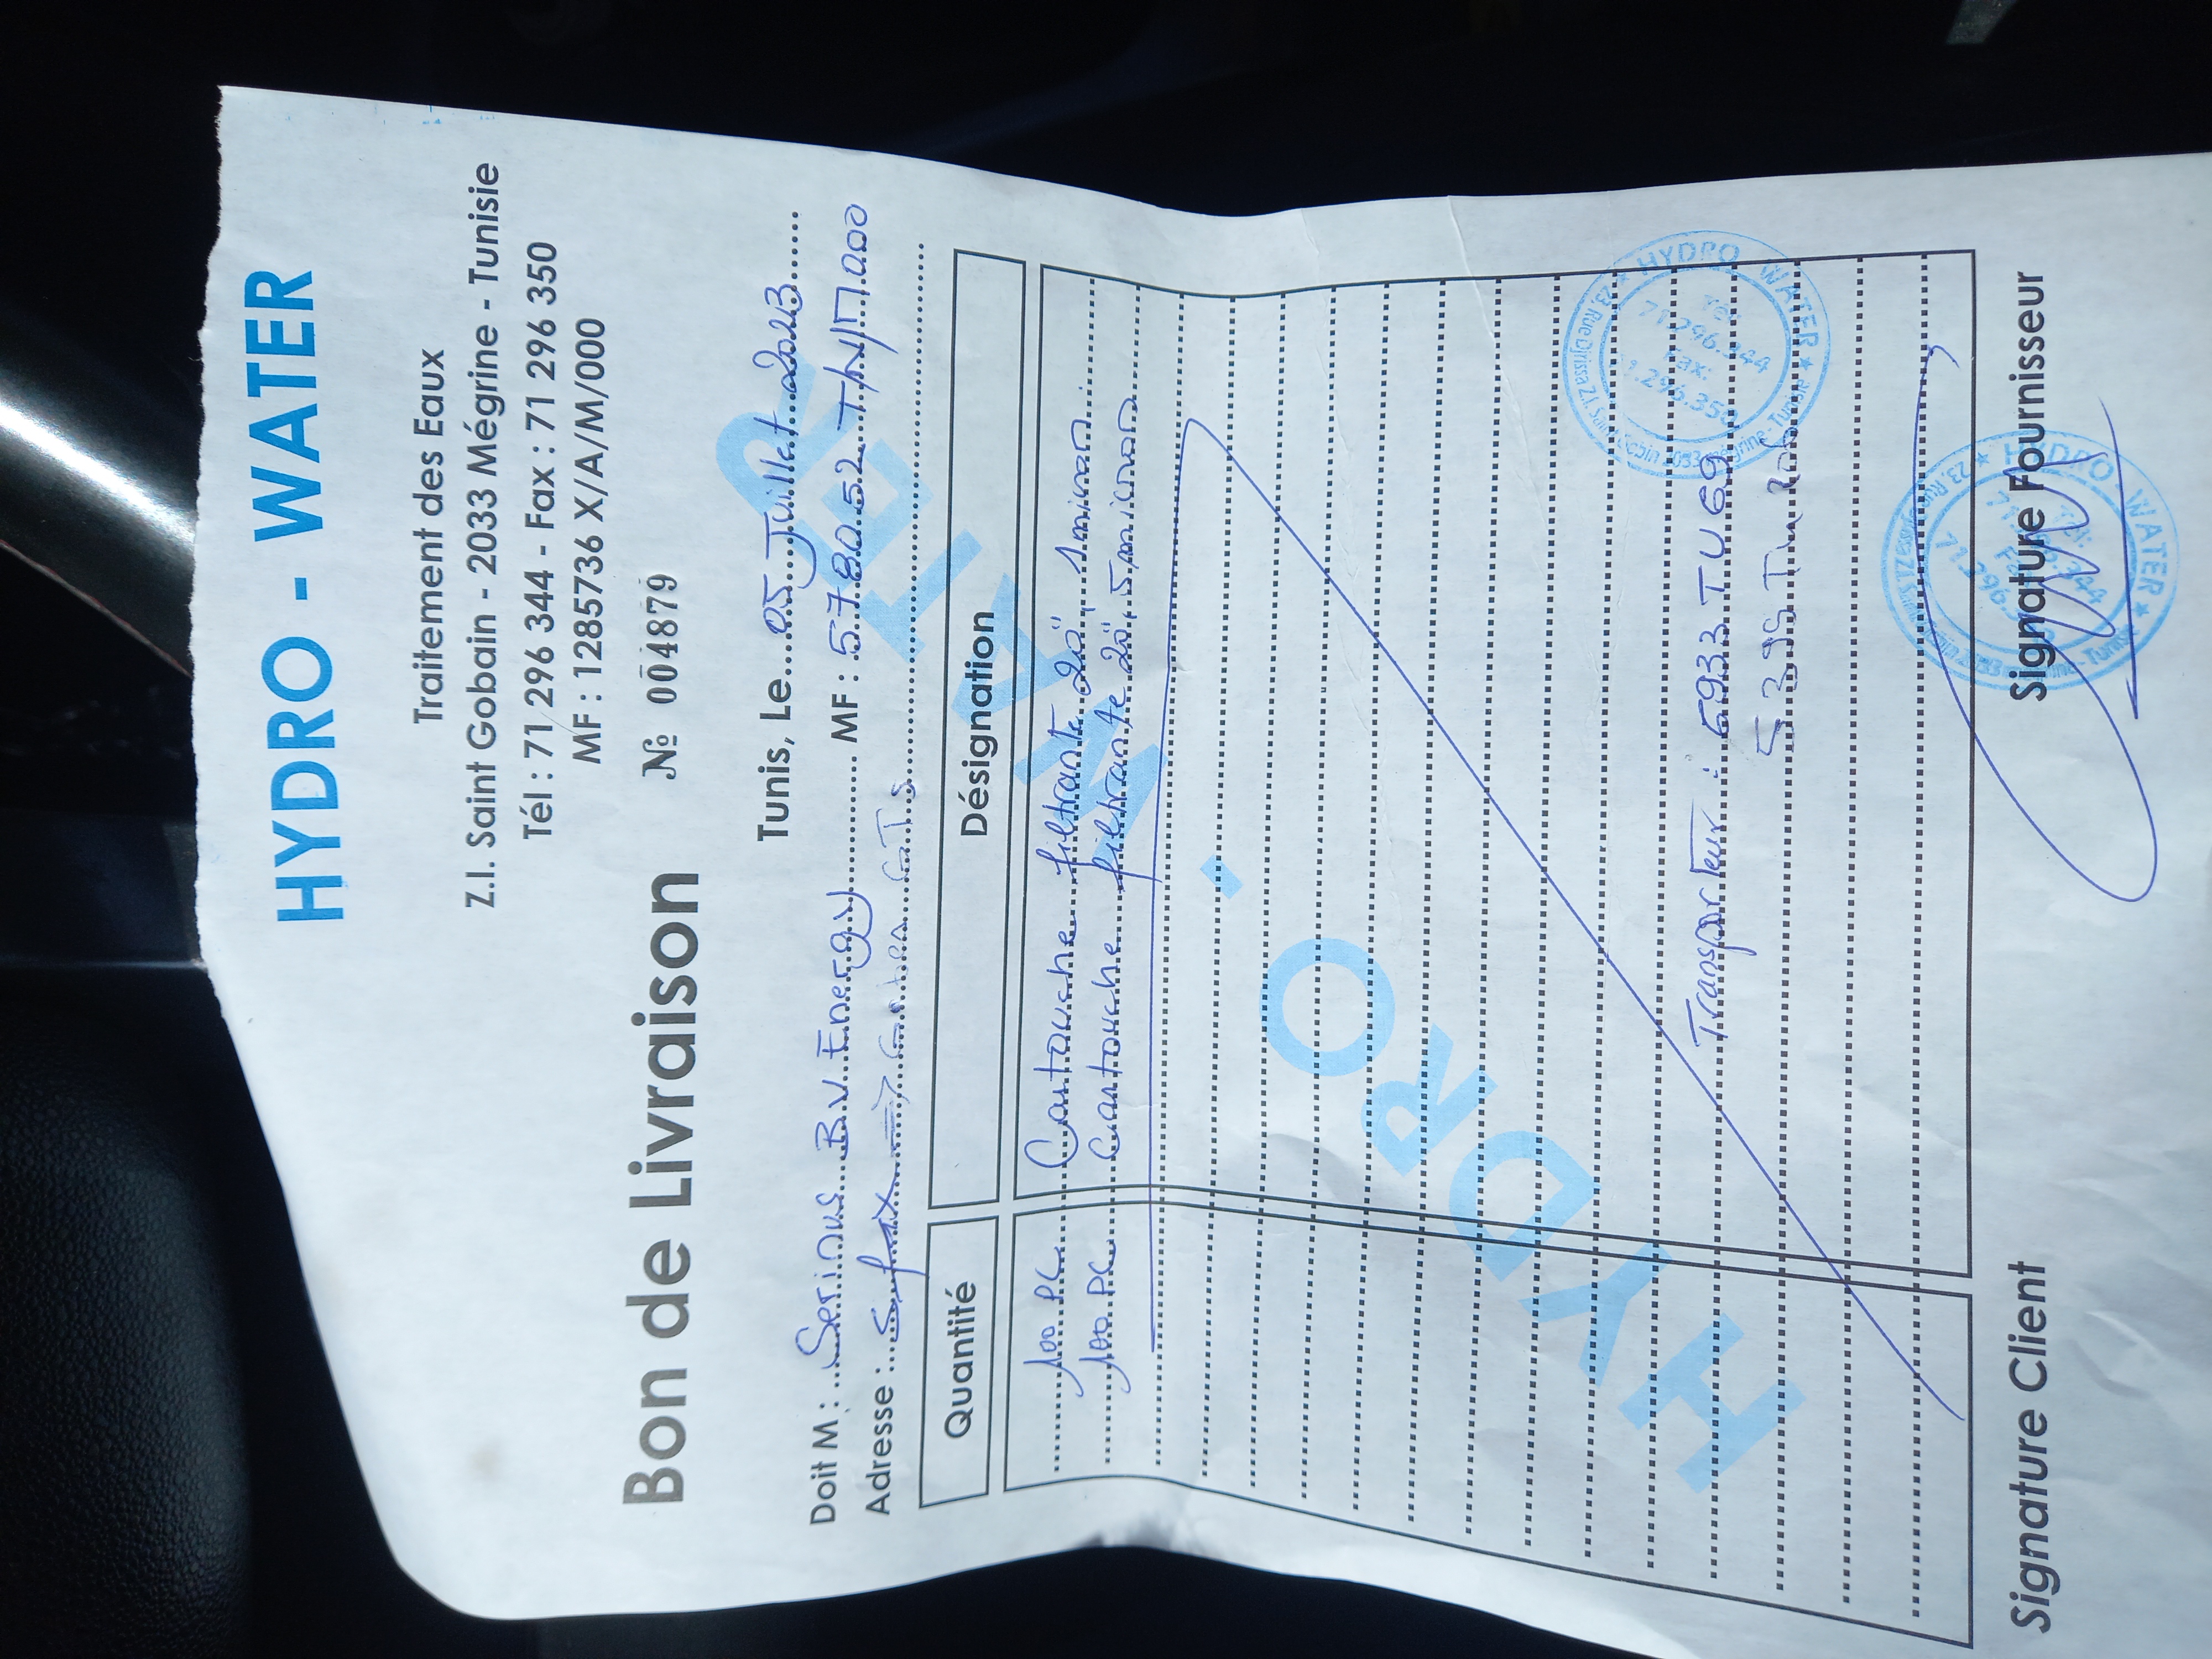 HYDRO - WATER
Traitement des Eaux
Z.I. Saint Gobain - 2033 Mégrine - Tunisie
Tél : 71 296 344 - Fax : 71 296 350
MF : 1285736 X/A/M/000
Bon de Livraison № 004879
Tunis, Le 05 Juillet 2023
Doit M : Serinus B.V. Energy MF : 578052 T/N/M.000
Adresse : Sfax => GTS
Quantité Désignation
100 PC Cartouche filtrante 20", 1 micron
100 PC Cartouche filtrante 20", 5 micron
HYDRO - WATER
Transporteur : 6933 TU 69
5395 Tu 206
HYDRO WATER ★ 23, Rue Djrissa Z.I. Saint Gobin 2033 Mégrine - Tunisie ★
Tél: 71.296.344
Fax: 71.296.350
Signature Client Signature Fournisseur
HYDRO WATER ★ 23, Rue Djrissa Z.I.